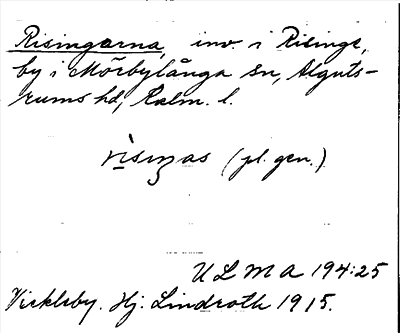 Risingarna, inv. i Risinge,
by i Mörbylånga sn, Alguts-
rums hd, Kalm. l.
risiŋas (pl. gen.)
U L M A 194:25
Vickleby. Hj. Lindroth 1915.